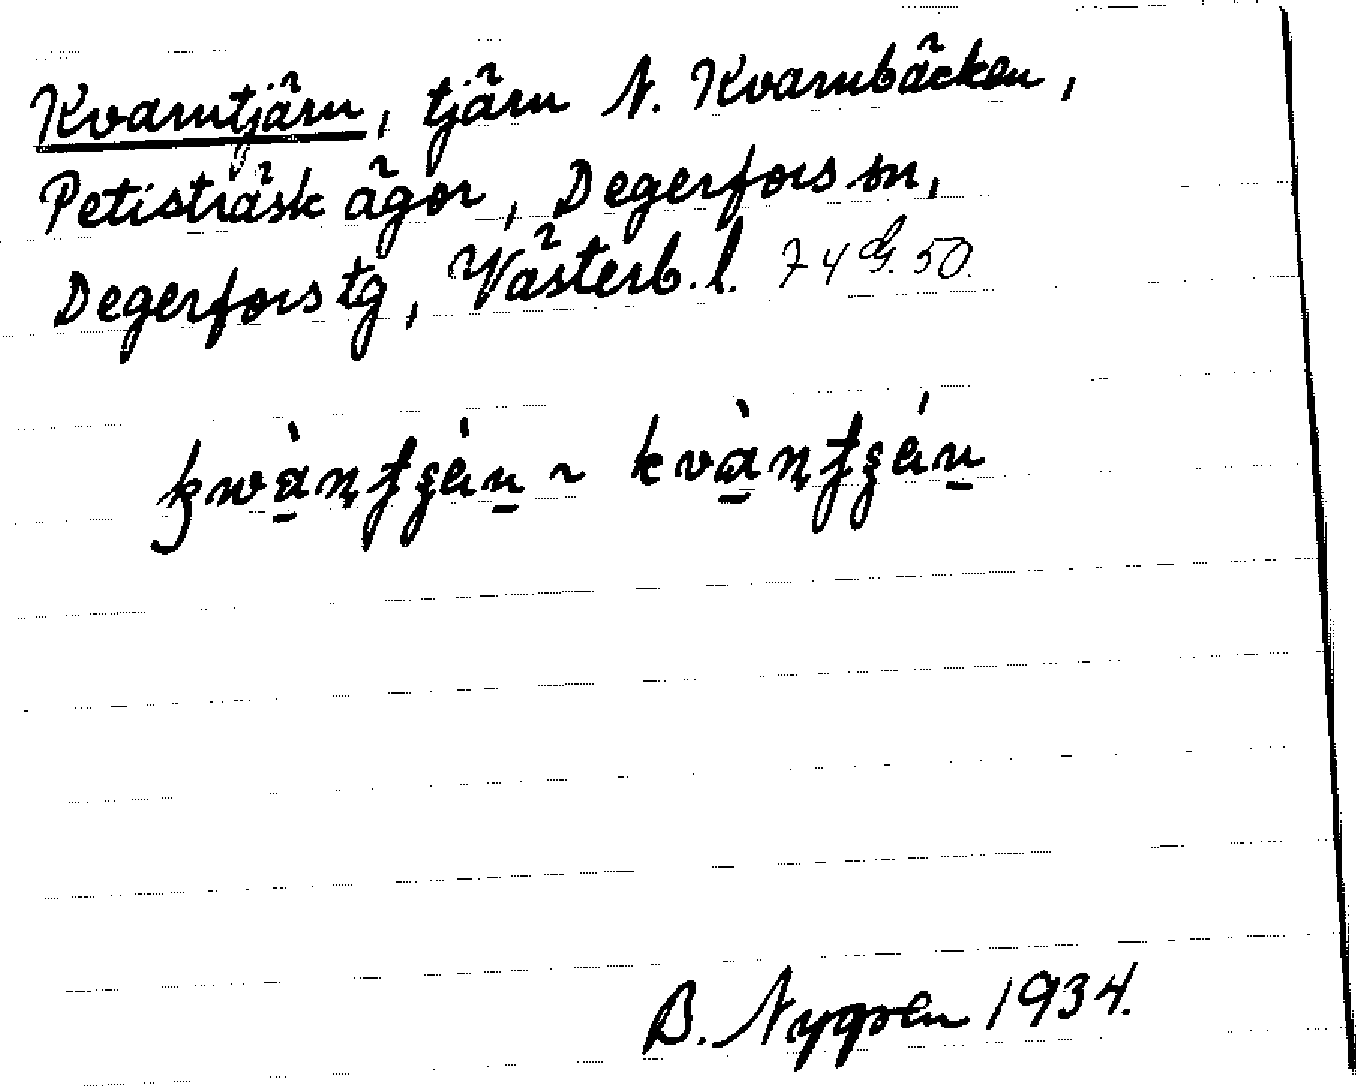 Kvarntjärn, tjärn N. Kvarnbäcken,
Petisträsk ägor, Degerfors sn,
Degerfors tg, Västerb. l. 74 G. 50.
~
B. Nygren 1934.